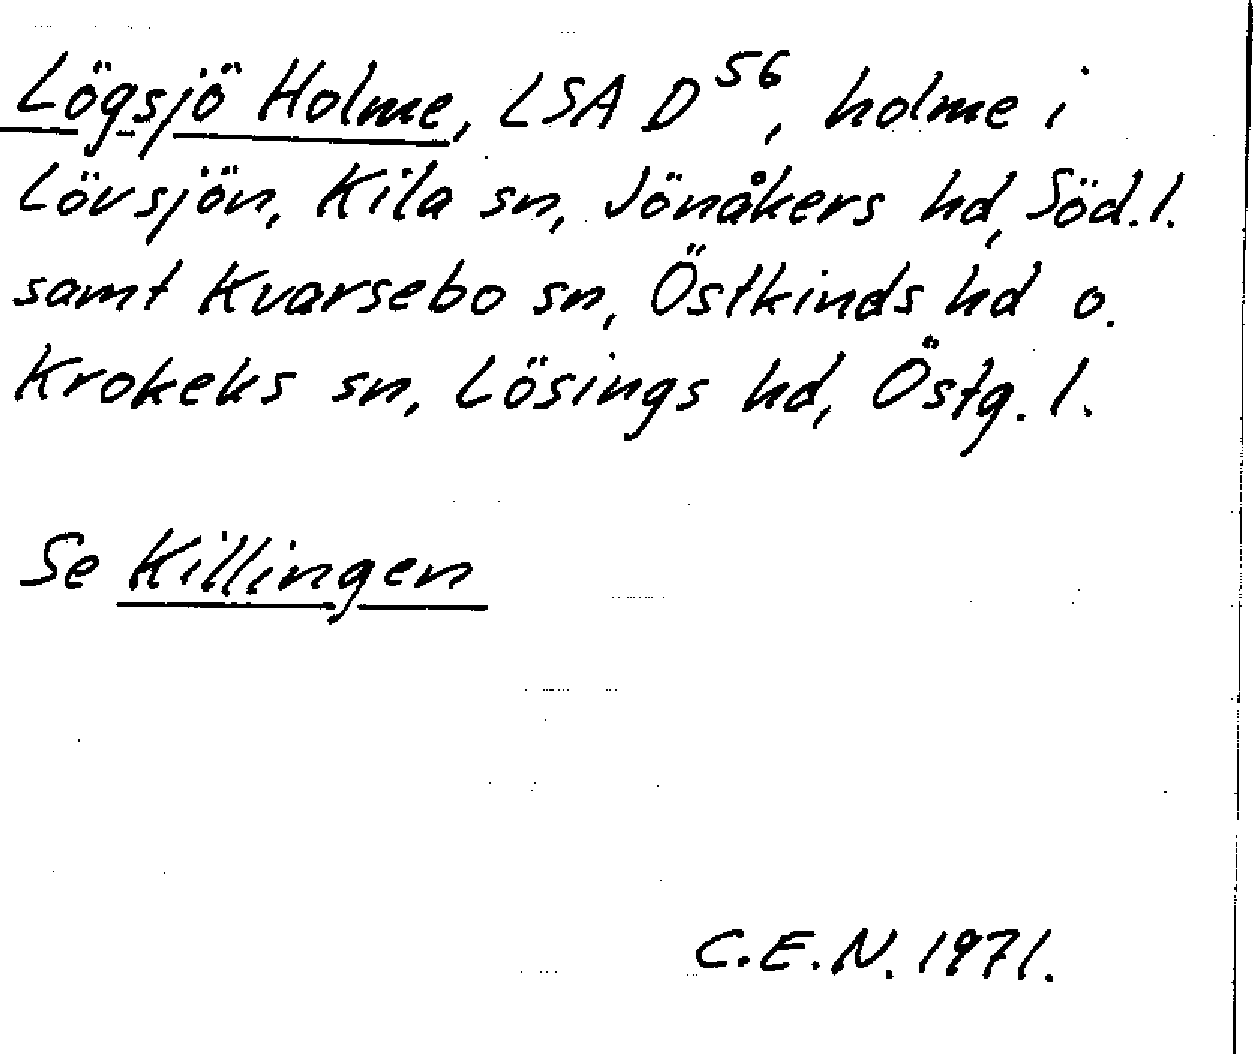 Lögsjö Holme, LSA D56, holme i
Lövsjön, Kila sn, Jönåkers hd, Söd.l.
samt Kvarsebo sn, Östkinds hd o.
Krokeks sn, Lösings hd, Östg. l.
Se Killingen
C.E.N. 1971.